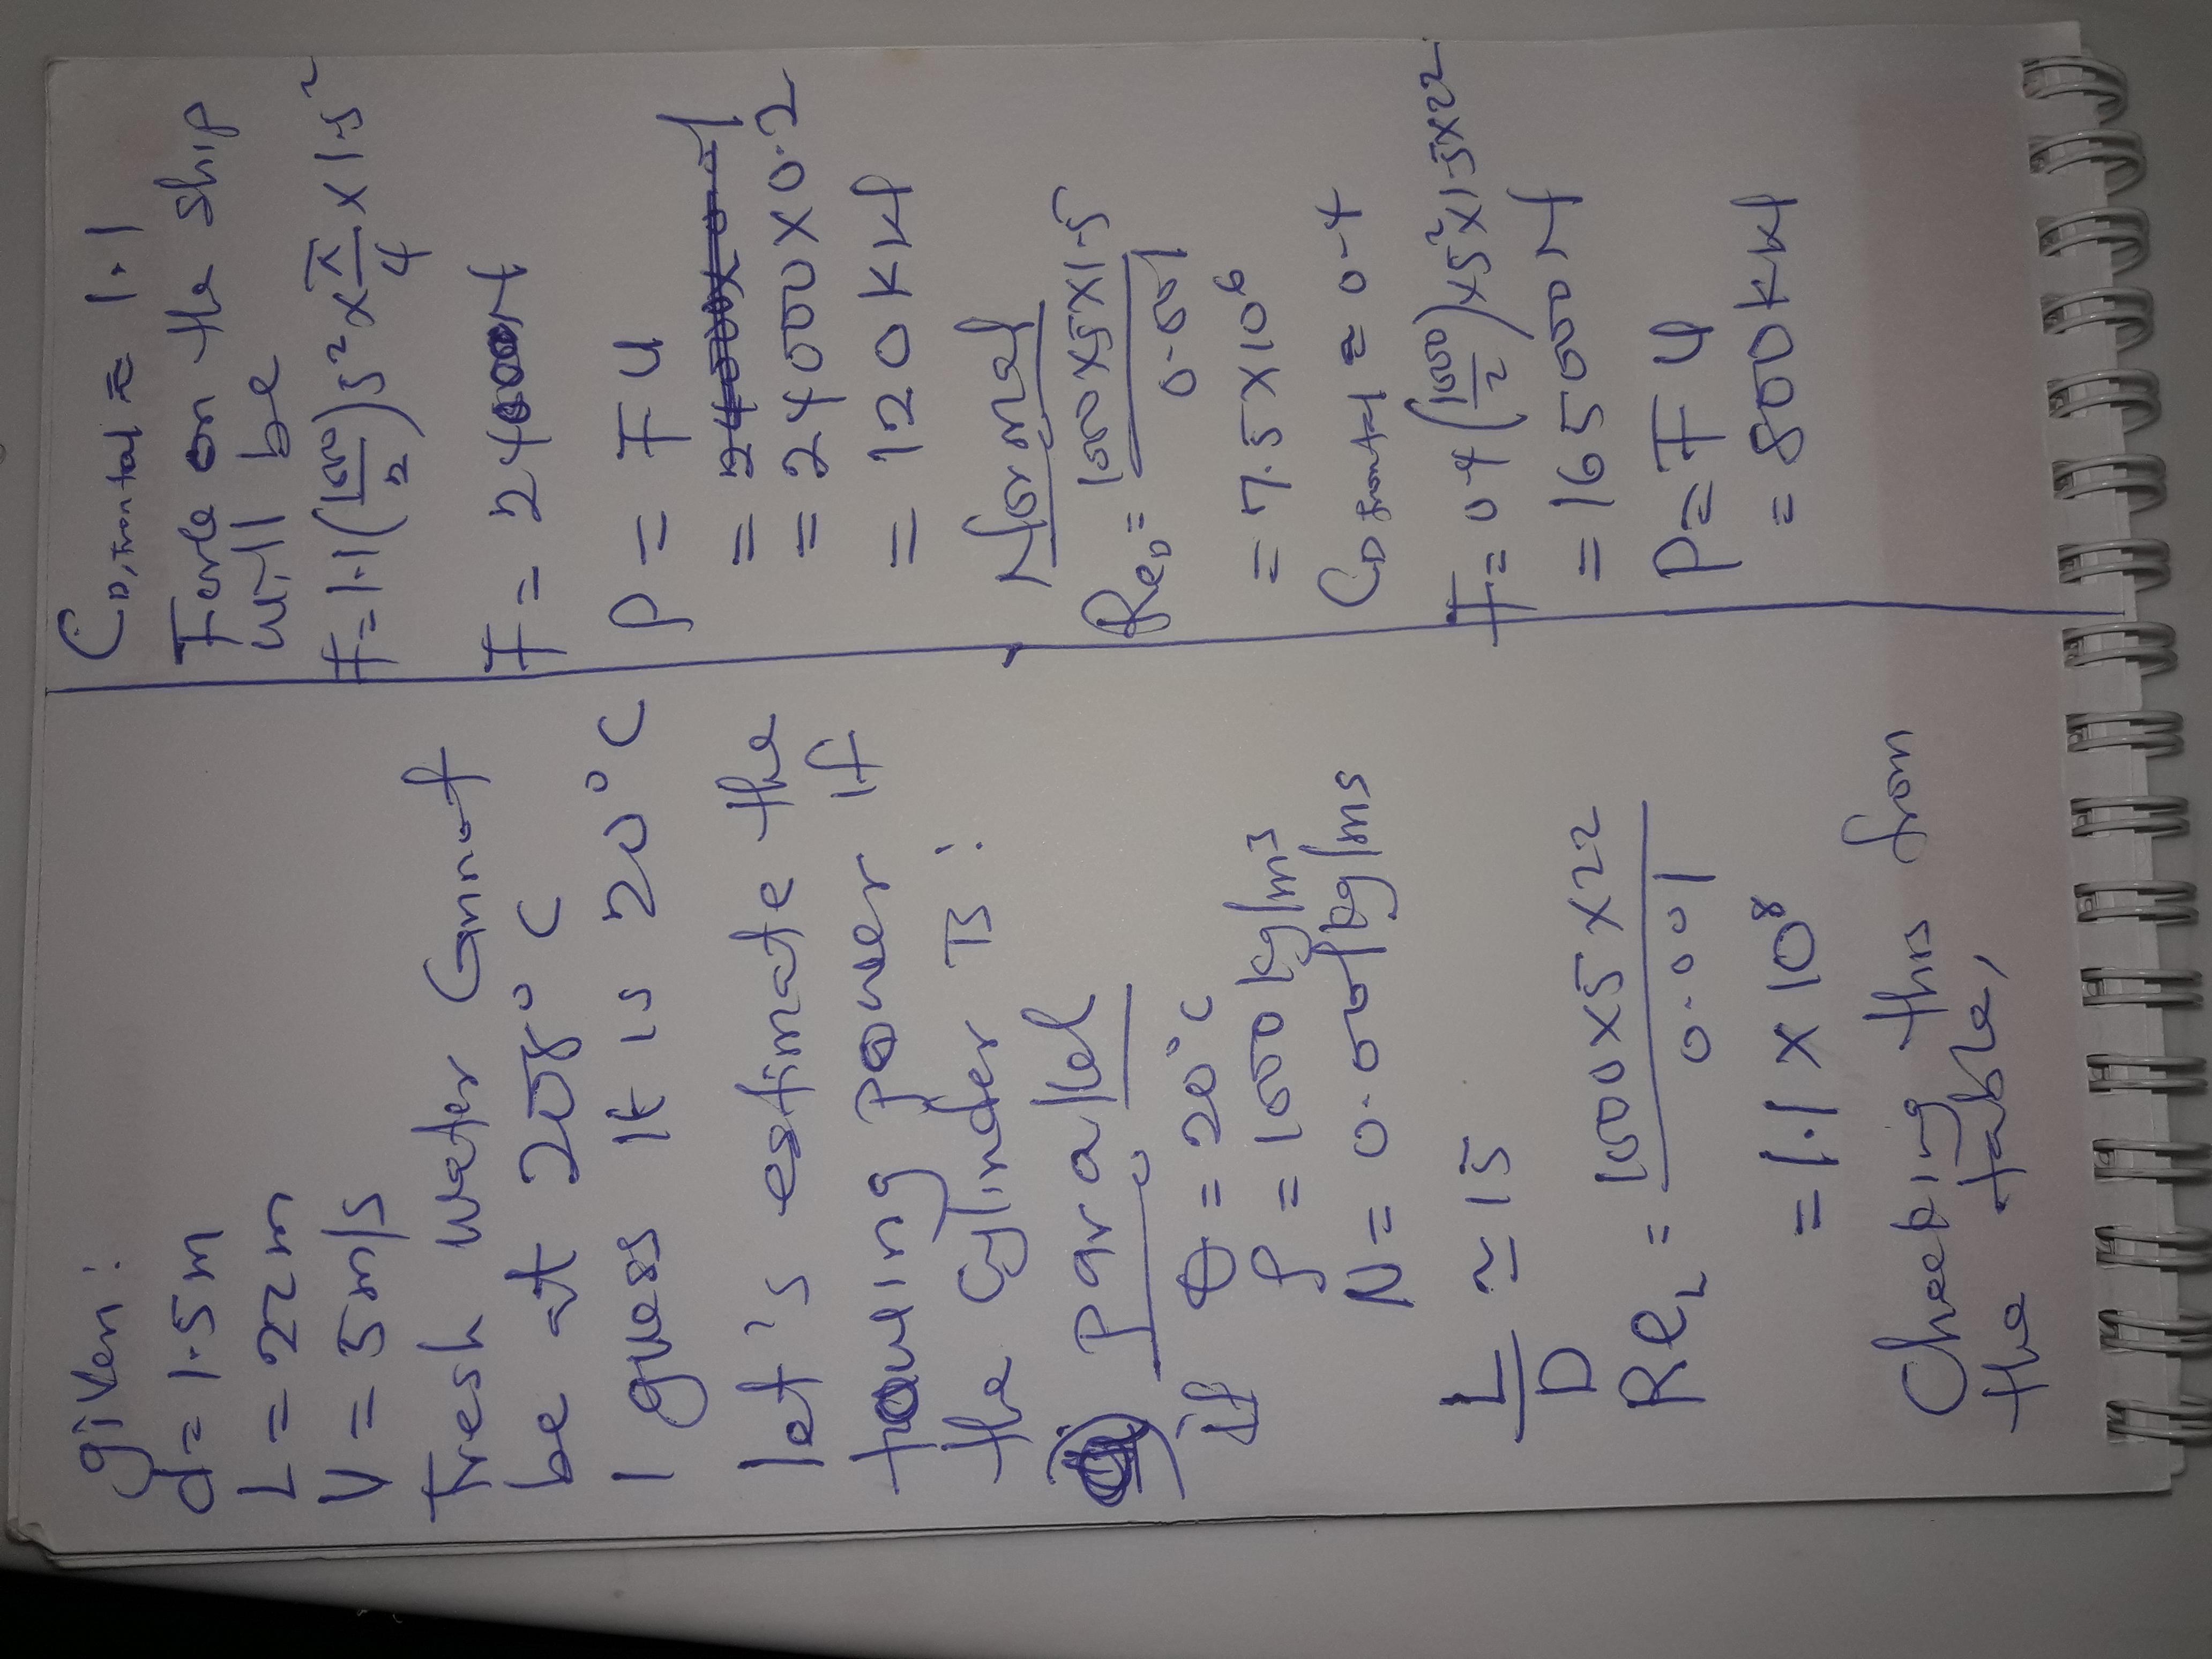 given:
d = 1.5m
L = 22m
V = 5m/s
Fresh water Cannot
be at 208°C
I guess it is 20°C
let's estimate the
towing power if
the cylinder Is:
Parallel
if θ = 20°C
ρ = 1000 kg/m³
N = 0.001 kg/ms
L/D ≃ 15
Re_L = 1000x5x22/0.001
= 1.1 x 10⁸
Checking this from
the table,
C_D,frontal ≈ 1.1
Force on the ship
will be
F = 1.1(1000/2)5² x π/4 x 1.5²
F = 24000N
P = FU
= 24000 x 0.2
= 120KN
Normal
Re_D = 1000x5x1.5/0.001
= 7.5 x 10⁶
C_D frontal ≈ 0.4
F = 0.4(1000/2)x5²x1.5x22
= 165000N
P = FU
= 800KN